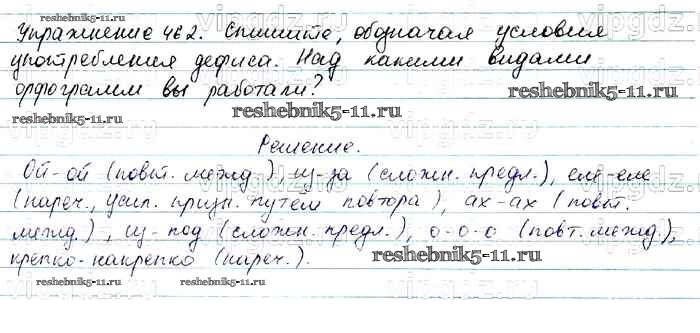 Упражнение 462. Спишите, обозначая условия
употребления дефиса. Над какими видами
орфограмм вы работали?
reshebnik5-11.ru
reshebnik5-11.ru
reshebnik5-11.ru
reshebnik5-11.ru
Решение.
Ой-ой (повт. межд.), из-за (сложн. предл.), еле-еле
(нареч., усил. призн. путём повтора), ах-ах (повт.
межд.), из-под (сложн. предл.), о-о-о (повт. межд.),
крепко-накрепко (нареч.).
reshebnik5-11.ru
reshebnik5-11.ru